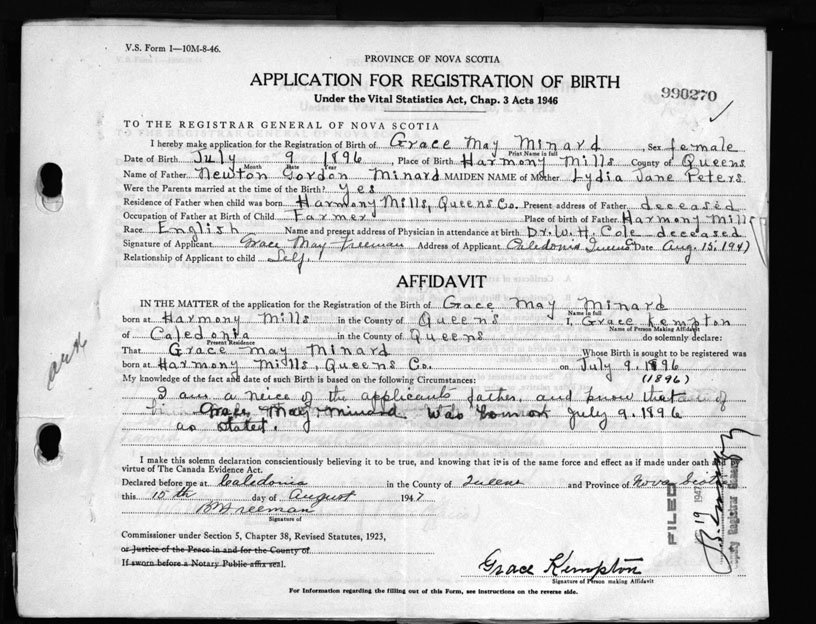 V.S. Form 1—10M-8-46.
PROVINCE OF NOVA SCOTIA
APPLICATION FOR REGISTRATION OF BIRTH
990270
Under the Vital Statistics Act, Chap. 3 Acts 1946
TO THE REGISTRAR GENERAL OF NOVA SCOTIA
I hereby make application for the Registration of Birth of Grace May Minard, Sex female
Print Name in full
Date of Birth July 9 1896, Place of Birth Harmony Mills County of Queens
Month Date Year
Name of Father Newton Gordon Minard MAIDEN NAME of Mother Lydia Jane Peters
Were the Parents married at the time of the Birth? yes
Residence of Father when child was born Harmony Mills, Queens Co. Present address of Father deceased
Occupation of Father at Birth of Child Farmer Place of birth of Father Harmony Mills
Race English Name and present address of Physician in attendance at birth Dr. W. H. Cole - deceased
Signature of Applicant Grace May Freeman Address of Applicant Caledonia Queens Date Aug. 15, 1947
Relationship of Applicant to child Self.
AFFIDAVIT
IN THE MATTER of the application for the Registration of the Birth of Grace May Minard
Name in full
born at Harmony Mills in the County of Queens I, Grace Kempton
Name of Person Making Affidavit
of Caledonia in the County of Queens do solemnly declare:
Present Residence
That Grace May Minard Whose Birth is sought to be registered was
born at Harmony Mills, Queens Co. on July 9, 1896
My knowledge of the fact and date of such Birth is based on the following Circumstances: (1896)
I am a neice of the applicants father, and know that
Grace May Minard was born on July 9, 1896
as stated.
I make this solemn declaration conscientiously believing it to be true, and knowing that it is of the same force and effect as if made under oath and
virtue of The Canada Evidence Act.
Declared before me at Caledonia in the County of Queens and Province of Nova Scotia
this 15th day of August 1947
Freeman
Signature of
Commissioner under Section 5, Chapter 38, Revised Statutes, 1923,
or Justice of the Peace in and for the County of
If sworn before a Notary Public affix seal.
Grace Kempton
Signature of Person making Affidavit
For Information regarding the filling out of this Form, see instructions on the reverse side.
FILED
19 1947
Deputy Registrar General